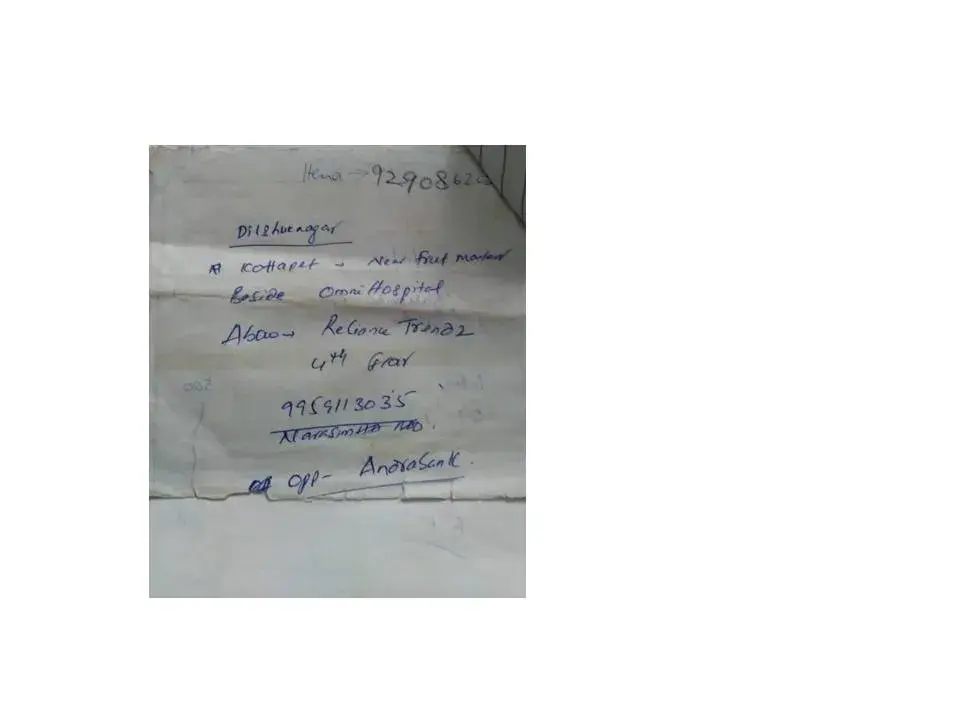 Hema → 92908620
Dilshuknagar
* Kottapet → Near fruit market
Beside Omni Hospital
Above → Reliance Trendz
4th Floor
9959113035
Narasimha Rao.
opp - Andrabank.